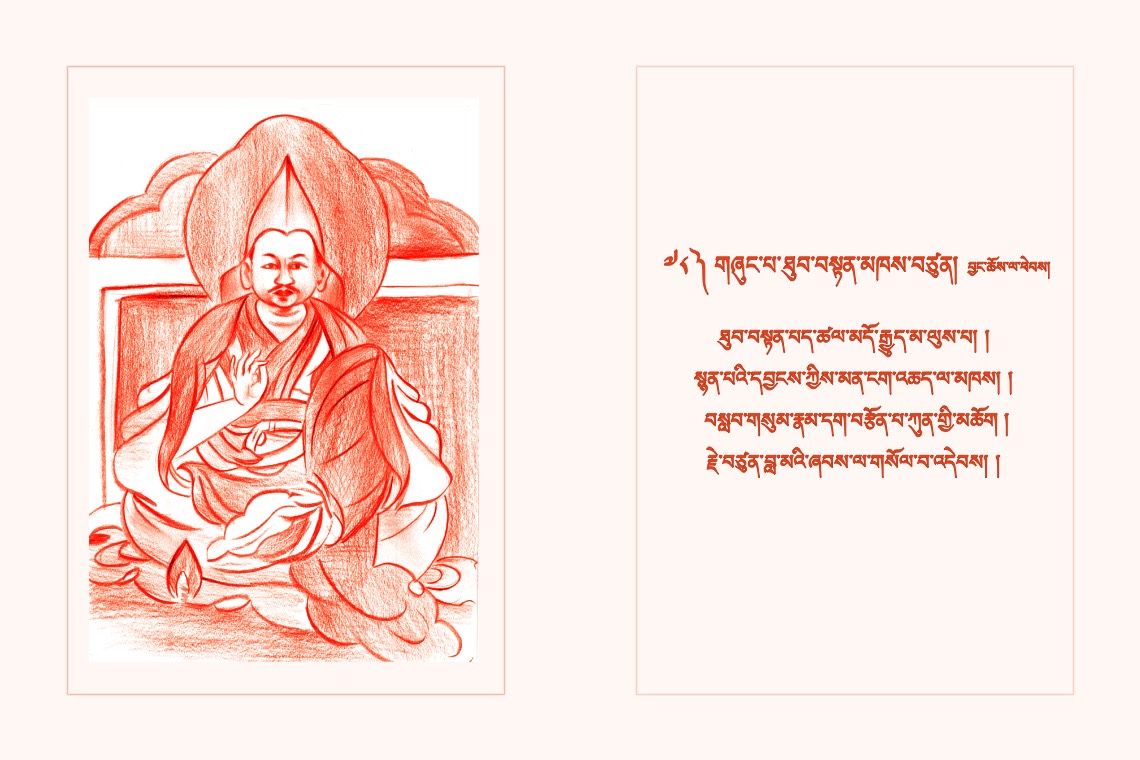 ༧༨༽ གཞུང་པ་ཐུབ་བསྟན་མཁས་བཙུན། བྱང་ཆོས་ལ་ཕེབས།
ཐུབ་བསྟན་པད་ཚལ་མདོ་རྒྱུད་མ་ལུས་པ། །
སྙན་པའི་དབྱངས་ཀྱིས་མན་ངག་འཆད་ལ་མཁས། །
བསླབ་གསུམ་རྣམ་དག་བརྩོན་པ་ཀུན་གྱི་མཆོག །
རྗེ་བཙུན་བླ་མའི་ཞབས་ལ་གསོལ་བ་འདེབས། །